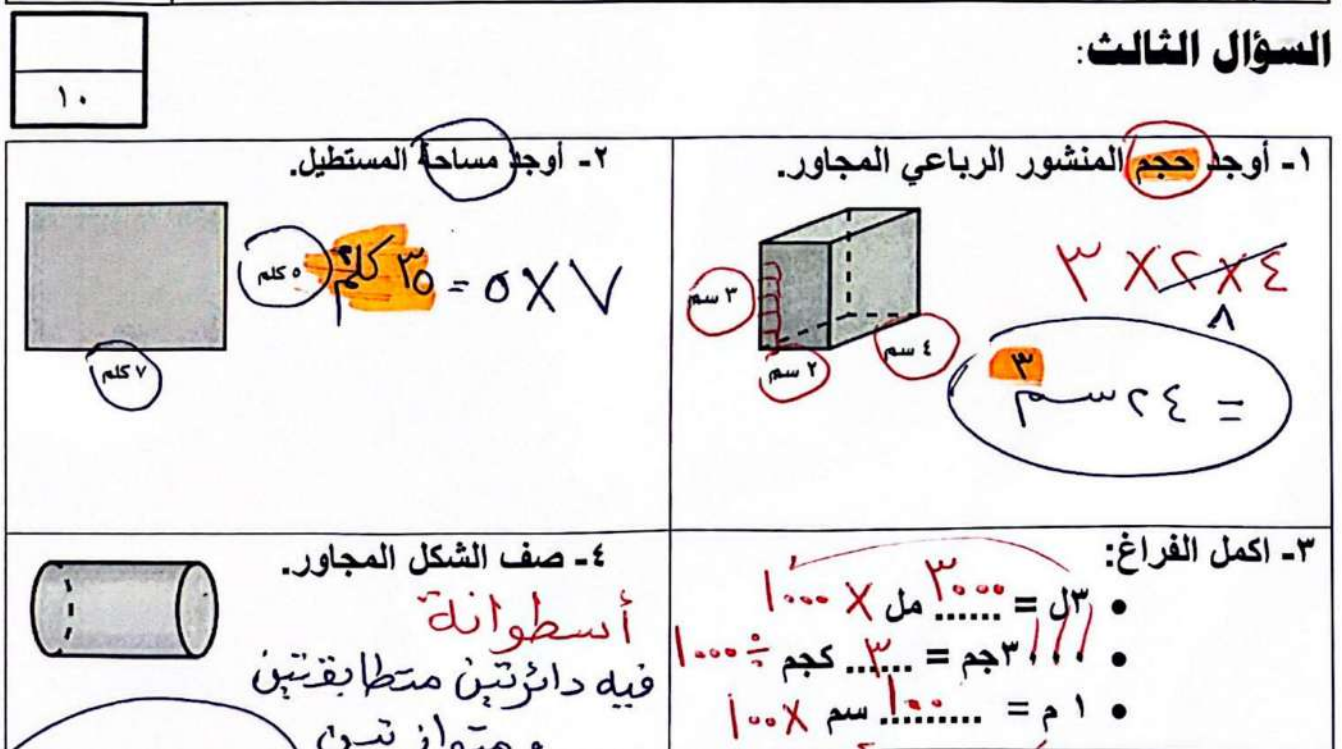 السؤال الثالث:
١٠
١- أوجد حجم المنشور الرباعي المجاور.
٤ × ٢ × ٣
٨
= ٢٤ سم٣
٣ سم
٢ سم
٤ سم
٢- أوجد مساحة المستطيل.
٧ × ٥ = ٣٥ كلم٢
٥ كلم
٧ كلم
٣- اكمل الفراغ:
• ٣ل = ...٣٠٠٠... مل × ١٠٠٠
• ٣٠٠٠جم = ...٣... كجم ÷ ١٠٠٠
• ١ م = ...١٠٠... سم × ١٠٠
٤- صف الشكل المجاور.
أسطوانة
فيه دائرتين متطابقتين
و متوازيتين